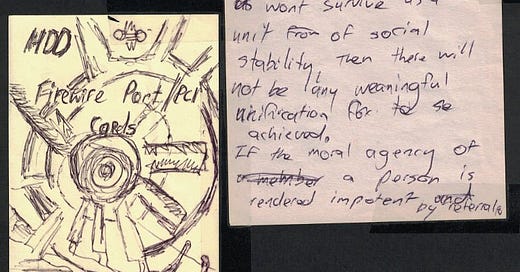 HDD
Firewire Port/PCI
Cards
wont survive as a
unit from of social
stability, Then there will
not be any meaningful
unification for to be
achieved.
If the moral agency of
a member a person is
rendered impotent and
by referrals